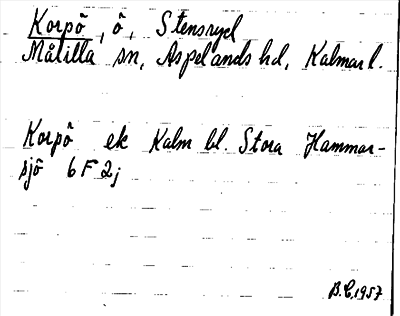 Korpö, ö, Stensryd
Målilla sn, Aspelands hd, Kalmar l.
Korpö ek Kalm bl. Stora Hammar-
sjö 6F2j
B.C. 1957